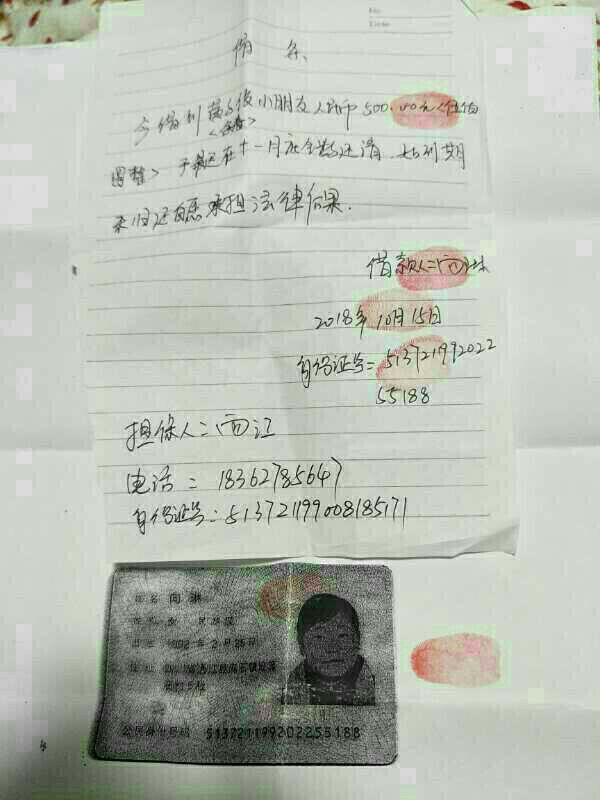 No.
Date
借条
今借到 小朋友人民币500.00元<伍佰
圆整> 于 在十一月底全数还清，如到期
未归还自愿承担法律后果.
借款人:向琳
2018年10月15日
身份证号:513721992022
55188
担保人:向江
电话:18362785647
身份证号:513721199008185171
姓名 向琳
公民身份号码 513721199202255188